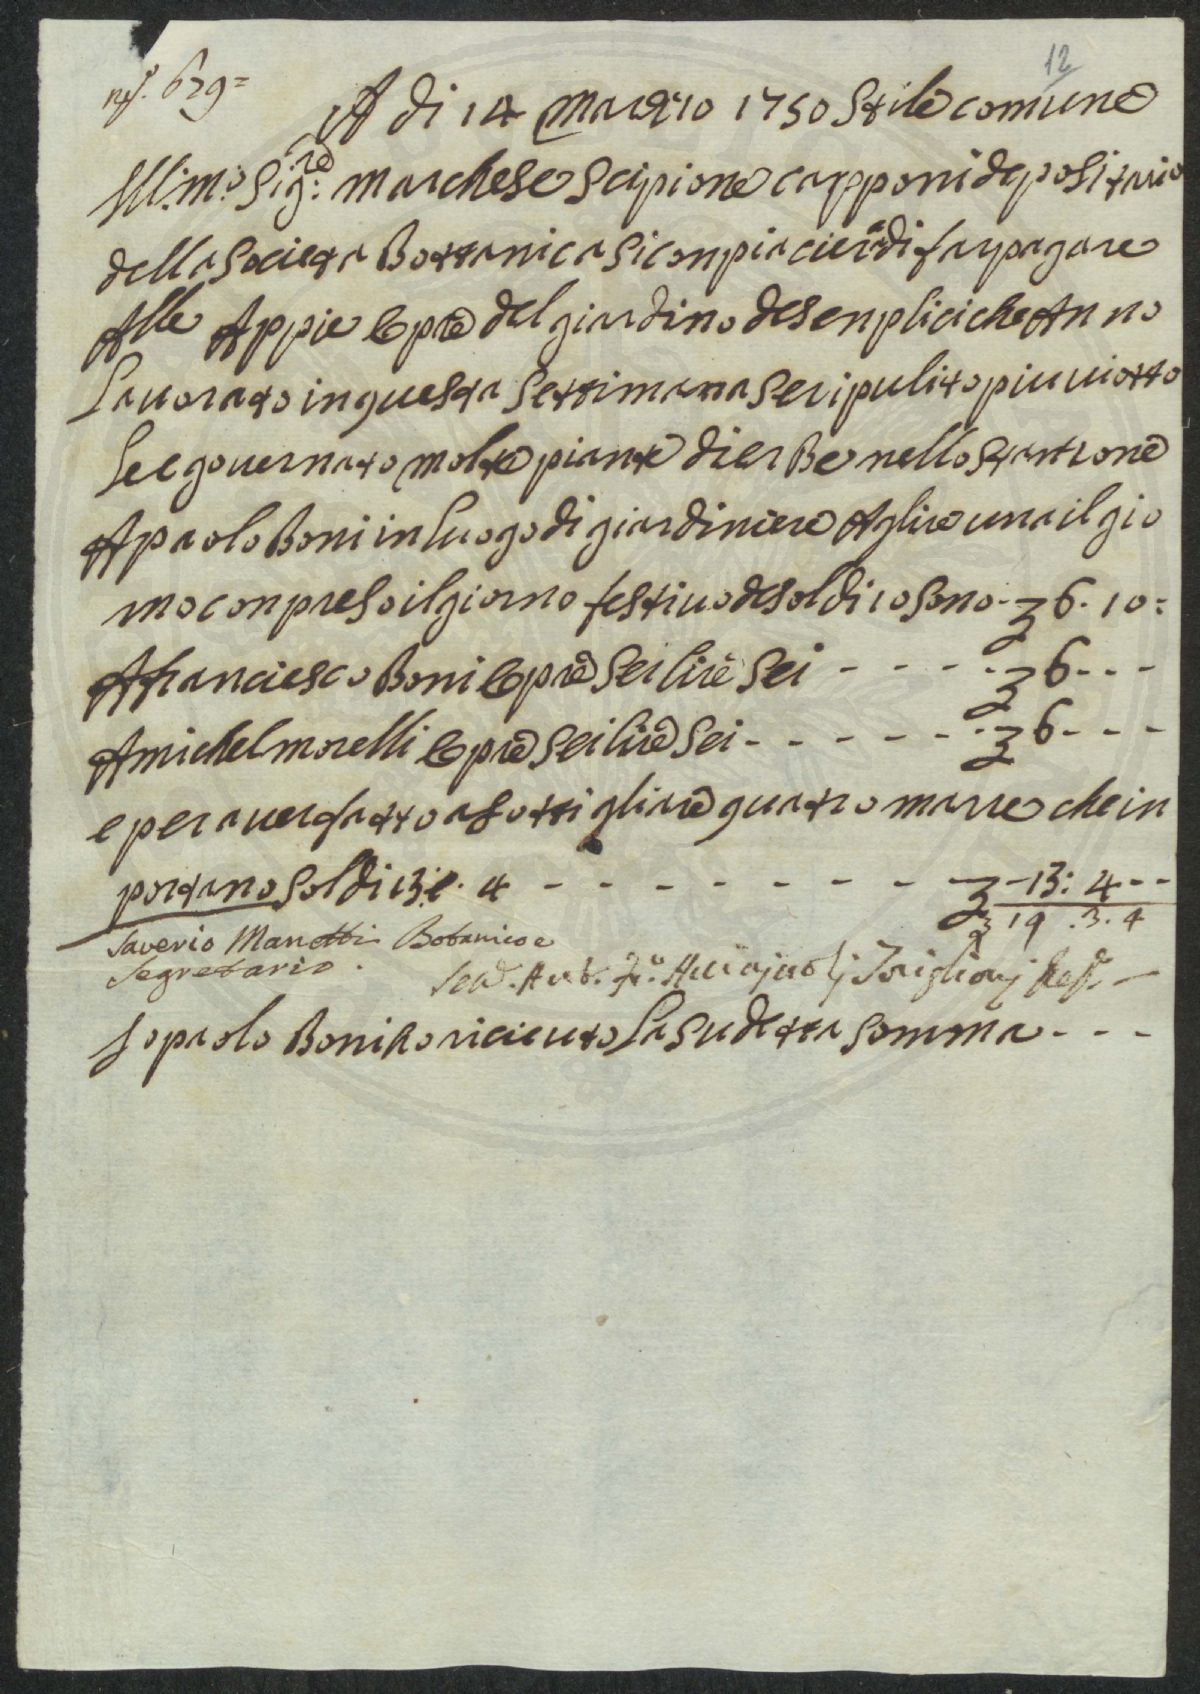 12
629=
A di 14 Marzo 1750 Stile comune
Ill:mo Sig:re Marchese Scipione capponi depositario
della Societa Bottanica Si conpiacierà di far pagare
Alle Appie opre del giardino de senplici che Anno
Lavorato in questa Settimana Se ripulito piu viotto
Se e governato molte piante di erBe nello Stantione
A paolo Boni in luogo di giardiniere A lire una il gio
rno conpreso il giorno festivo de soldi 10 Sono - 6. 10:
A francesco Boni opre Sei lire Sei - - - - - 6 - - -
A michel morelli opre Sei lire Sei - - - - - - 6 - - -
e per aver fatto asottigliare quatro marre che in
portano Soldi 13: e. 4 - - - - - - - - - - 13: 4 - -
19 . 3. 4
Saverio Manetti Botanico e
Segretario.
Io paolo Boni ho riceuto La Sudetta Somma - - -